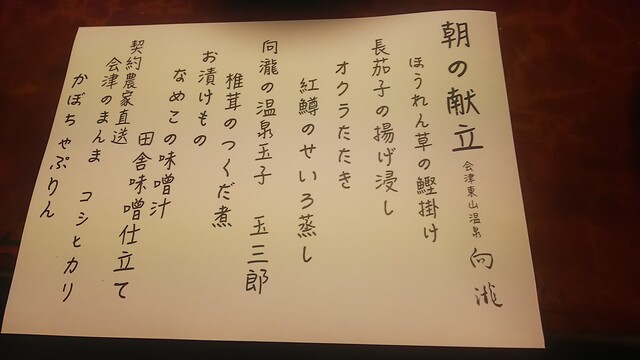 朝の献立 会津東山温泉 向瀧
ほうれん草の鰹掛け
長茄子の揚げ浸し
オクラたたき
紅鱒のせいろ蒸し
向瀧の温泉玉子 玉三郎
椎茸のつくだ煮
お漬けもの
なめこの味噌汁
田舎味噌仕立て
契約農家直送
会津のまんま コシヒカリ
かぼちゃぷりん